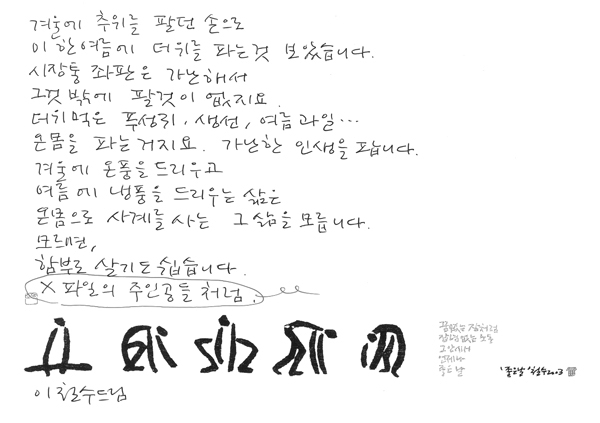 겨울에 추위를 팔던 손으로
이 한여름에 더위를 파는것 보았습니다.
시장통 좌판은 가난해서
그것 밖에 팔것이 없지요.
더위먹은 푸성귀, 생선, 여름과일…
온몸을 파는거지요. 가난한 인생을 팝니다.
겨울에 온풍을 드리우고
여름에 냉풍을 드리우는 삶은
온몸으로 사계를 사는 그 삶을 모릅니다.
모르면,
함부로 살기도 쉽습니다.
X 파일의 주인공들처럼.
이철수드림
언제나
좋은 날
'좋은날' 철수2003